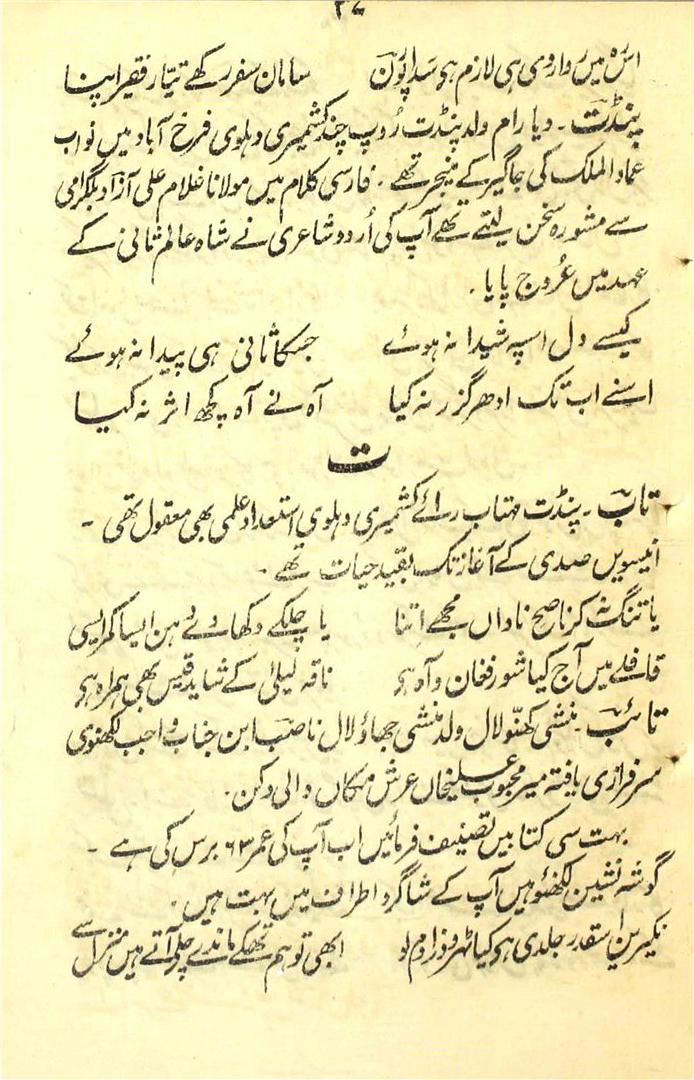 ۲۷
اس رہ میں رواروی ہی لازم ہو سدا پونؔ سامان سفر رکھے تیّار فقیر اپنا
پنڈتؔ ۔ دیا رام ولد پنڈت رُوپ چند کشمیری دہلوی فرخ آباد میں نواب
عماد الملک کی جاگیر کے منیجر تھے ۔ فارسی کلام میں مولانا غلام علی آزاد بلگرامی
سے مشورہ سخن لیتے تھے آپ کی اُردو شاعری نے شاہ عالم ثانی کے
عہد میں عُروج پایا ۔
کیسے دل اسپہ شیدا نہ ہوئے جسکا ثانی ہی پیدا نہ ہوئے
اسنے اب تک ادھر گزر نہ کیا آہ نے آہ کچھ اثر نہ کیا
ت
تابؔ ۔ پنڈت مہتاب رائے کشمیری دہلوی استعداد علمی بھی معقول تھی ۔
انیسویں صدی کے آغاز تک بقید حیات تھے ۔
یا تنگ نہ کر ناصح ناداں مجھے اتنا یا چلکے دکھا دے دہن ایسا کمر ایسی
قافلے میں آج کیا شور فغان و آہ ہو ناقہ لیلیٰ کے شاید قیس بھی ہمراہ ہو
تائبؔ ۔ منشی کھنّو لال ولد منشی جھاؤ لال ناصبؔ ابن جناب واجب لکھنوی
سرفرازی یافتہ میر محبوب علیخاں عرش مکاں والی دکن ۔
بہت سی کتابیں تصنیف فرمائیں اب آپ کی عمر ۶۳ برس کی ہے ۔
گوشہ نشین لکھنؤ ہیں آپ کے شاگرد اطراف میں بہت ہیں ۔
نکیرین اسقدر جلدی ہو کیا ٹھہرو ذرا دم لو ابھی تو ہم تھکے ماندے چلے آتے ہیں منزل سے